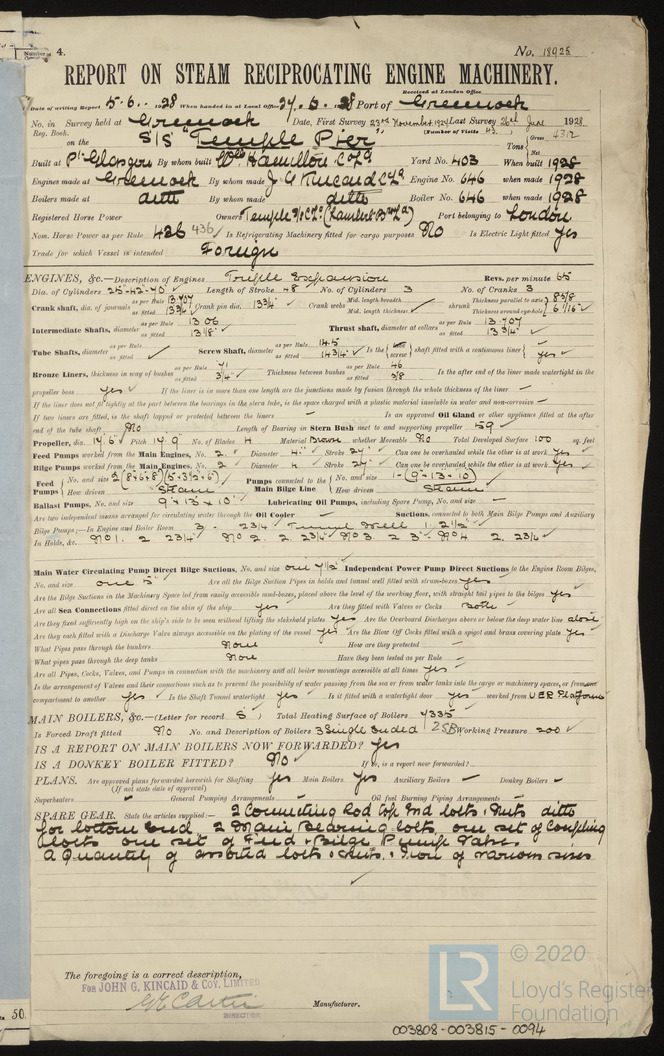 4.
No. 18928
REPORT ON STEAM RECIPROCATING ENGINE MACHINERY.
Received at London Office
Date of writing Report 5.6. 1928 When handed in at Local Office 27.6.28 Port of Greenock
No. in Survey held at Greenock Date, First Survey 23rd November 1927 Last Survey 26th June 1928
Reg. Book. (Number of Visits 43.)
on the S/S "Temple Pier" Tons { Gross 4312 Net
Built at Pt Glasgow By whom built Wm Hamilton & Co Ld Yard No. 403 When built 1928
Engines made at Greenock By whom made J. G Kincaid & Co Ld Engine No. 646 when made 1928
Boilers made at ditto By whom made ditto Boiler No. 646 when made 1928
Registered Horse Power Owners Temple Port belonging to London
Nom. Horse Power as per Rule 426 436 Is Refrigerating Machinery fitted for cargo purposes No Is Electric Light fitted Yes
Trade for which Vessel is intended Foreign
ENGINES, &c.—Description of Engines Triple Expansion Revs. per minute 65
Dia. of Cylinders 25"-42"-70" Length of Stroke 48 No. of Cylinders 3 No. of Cranks 3
Crank shaft, dia. of journals as per Rule 13.707 as fitted 13 3/4" Crank pin dia. 13 3/4" Crank webs Mid. length breadth Mid. length thickness shrunk Thickness parallel to axis 8 5/8 Thickness around eye-hole 6 1/16"
Intermediate Shafts, diameter as per Rule 13.06 as fitted 13 1/8" Thrust shaft, diameter at collars as per Rule 13.707 as fitted 13 3/4"
Tube Shafts, diameter as per Rule as fitted Screw Shaft, diameter as per Rule 14.5 as fitted 14 3/4" Is the { tube screw } shaft fitted with a continuous liner { yes
Bronze Liners, thickness in way of bushes as per Rule .71 as fitted 3/4" Thickness between bushes as per Rule .46 as fitted 5/8 Is the after end of the liner made watertight in the
propeller boss yes If the liner is in more than one length are the junctions made by fusion through the whole thickness of the liner –
If the liner does not fit tightly at the part between the bearings in the stern tube, is the space charged with a plastic material insoluble in water and non-corrosive –
If two liners are fitted, is the shaft lapped or protected between the liners – Is an approved Oil Gland or other appliance fitted at the after
end of the tube shaft No Length of Bearing in Stern Bush next to and supporting propeller 59"
Propeller, dia. 17'6" Pitch 17'9" No. of Blades 4 Material Bronze whether Moveable No Total Developed Surface 100 sq. feet
Feed Pumps worked from the Main Engines, No. 2. Diameter 4" Stroke 24" Can one be overhauled while the other is at work Yes
Bilge Pumps worked from the Main Engines, No. 2 Diameter 4 Stroke 24" Can one be overhauled while the other is at work Yes
Feed Pumps { No. and size 2 (8×6×8)(5×3½×6) How driven Steam Pumps connected to the Main Bilge Line { No. and size 1-(9×13×10) How driven Steam
Ballast Pumps, No. and size 9"×13"×10" Lubricating Oil Pumps, including Spare Pump, No. and size –
Are two independent means arranged for circulating water through the Oil Cooler – Suctions, connected to both Main Bilge Pumps and Auxiliary
Bilge Pumps;—In Engine and Boiler Room 3 - 2 3/4 Tunnel Well 1. 2 1/2"
In Holds, &c. No 1. 2 2 3/4" No 2. 2. 2 3/4" No 3. 2 3" No 4 2. 2 3/4"
Main Water Circulating Pump Direct Bilge Suctions, No. and size one 7 1/2" Independent Power Pump Direct Suctions to the Engine Room Bilges,
No. and size one 5" Are all the Bilge Suction Pipes in holds and tunnel well fitted with strum-boxes yes
Are the Bilge Suctions in the Machinery Space led from easily accessible mud-boxes, placed above the level of the working floor, with straight tail pipes to the bilges yes
Are all Sea Connections fitted direct on the skin of the ship yes Are they fitted with Valves or Cocks both
Are they fixed sufficiently high on the ship's side to be seen without lifting the stokehold plates yes Are the Overboard Discharges above or below the deep water line above
Are they each fitted with a Discharge Valve always accessible on the plating of the vessel yes Are the Blow Off Cocks fitted with a spigot and brass covering plate yes
What Pipes pass through the bunkers None How are they protected –
What pipes pass through the deep tanks None Have they been tested as per Rule –
Are all Pipes, Cocks, Valves, and Pumps in connection with the machinery and all boiler mountings accessible at all times yes
Is the arrangement of Valves and their connections such as to prevent the possibility of water passing from the sea or from water tanks into the cargo or machinery spaces, or from one
compartment to another yes Is the Shaft Tunnel watertight yes Is it fitted with a watertight door yes worked from UER Platform
MAIN BOILERS, &c.—(Letter for record S) Total Heating Surface of Boilers 7335
Is Forced Draft fitted No No. and Description of Boilers 3 Single Ended 2SB Working Pressure 200
IS A REPORT ON MAIN BOILERS NOW FORWARDED? Yes
IS A DONKEY BOILER FITTED? No If so, is a report now forwarded? –
PLANS. Are approved plans forwarded herewith for Shafting Yes Main Boilers Yes Auxiliary Boilers – Donkey Boilers –
(If not state date of approval)
Superheaters – General Pumping Arrangements – Oil fuel Burning Piping Arrangements –
SPARE GEAR. State the articles supplied:— 2 Connecting Rod top End bolts & Nuts ditto
for bottom End 2 Main Bearing bolts, one set of Coupling
bolts one set of Feed & Bilge Pump Valves
A Quantity of assorted bolts & Nuts. & Iron of various sizes
The foregoing is a correct description,
FOR JOHN G. KINCAID & COY. LIMITED
DIRECTOR
Manufacturer.
50.
© 2020
LR
Lloyd's Register
Foundation
003808-003815-0094